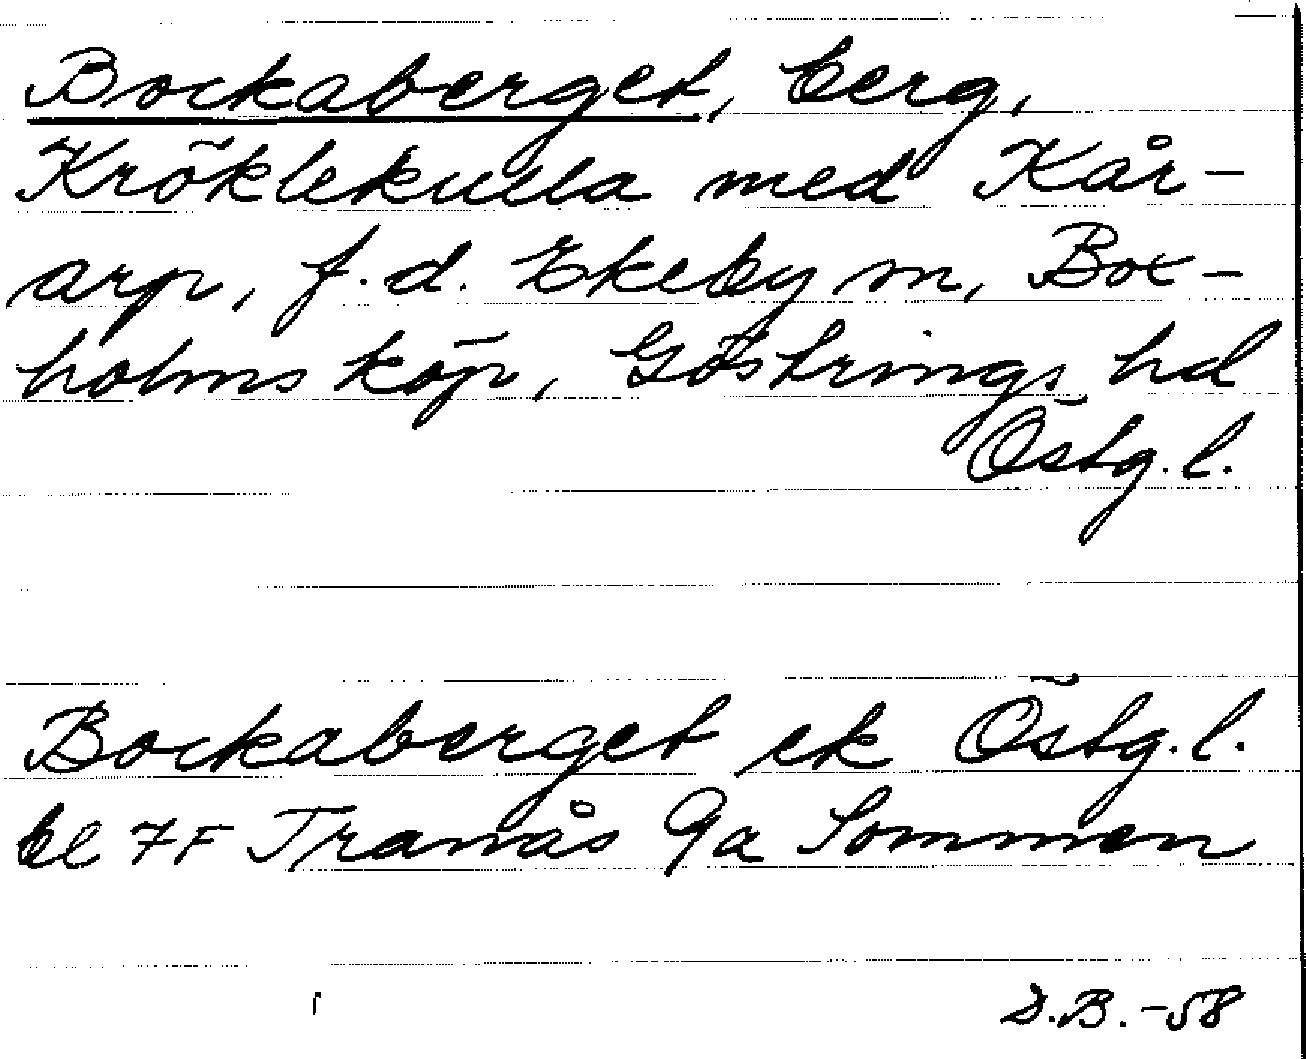 Bockaberget, berg,
Kröklekulla med Kår-
arp, f.d. Ekeby sn, Box-
holms köp, Göstrings hd
Östg. l.
Bockaberget ek Östg. l.
bl 7F Tranås 9a Sommen
D.B. -58